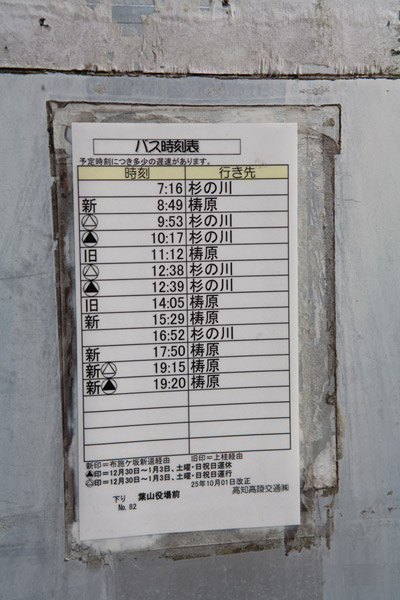 バス時刻表
予定時刻につき多少の遅速があります。
時刻 行き先
7:16 杉の川
新 8:49 梼原
△ 9:53 杉の川
▲ 10:17 杉の川
旧 11:12 梼原
△ 12:38 杉の川
▲ 12:39 杉の川
旧 14:05 梼原
新 15:29 梼原
16:52 杉の川
新 17:50 梼原
新△ 19:15 梼原
新▲ 19:20 梼原
新印=布施ケ坂新道経由 旧印=上桂経由
▲印=12月30日~1月3日、土曜・日祝日運休
△印=12月30日~1月3日、土曜・日祝日運行
25年10月01日改正
下り 葉山役場前 高知高陵交通㈱
No. 82